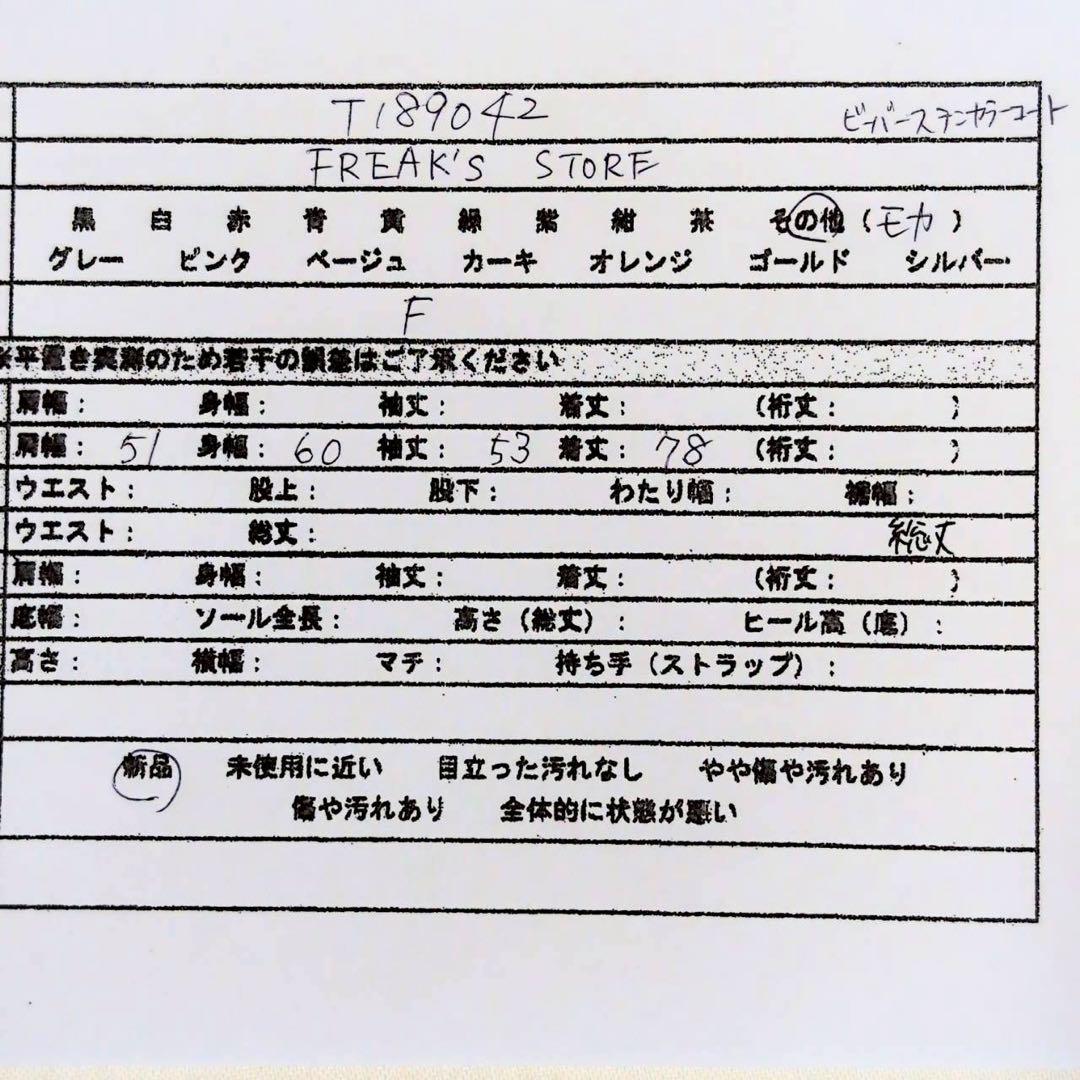 T189042
ビーバーステンカラーコート
FREAK'S STORE
黒 白 赤 青 黄 緑 紫 紺 茶 その他 (モカ)
グレー ピンク ベージュ カーキ オレンジ ゴールド シルバー
F
※平置き実測のため若干の誤差はご了承ください
肩幅： 身幅： 袖丈： 着丈： (裄丈： )
肩幅： 51 身幅： 60 袖丈： 53 着丈： 78 (裄丈： )
ウエスト： 股上： 股下： わたり幅： 裾幅：
ウエスト： 総丈： 総丈
肩幅： 身幅： 袖丈： 着丈： (裄丈： )
底幅： ソール全長： 高さ（総丈）： ヒール高（底）：
高さ： 横幅： マチ： 持ち手（ストラップ）：
新品 未使用に近い 目立った汚れなし やや傷や汚れあり
傷や汚れあり 全体的に状態が悪い